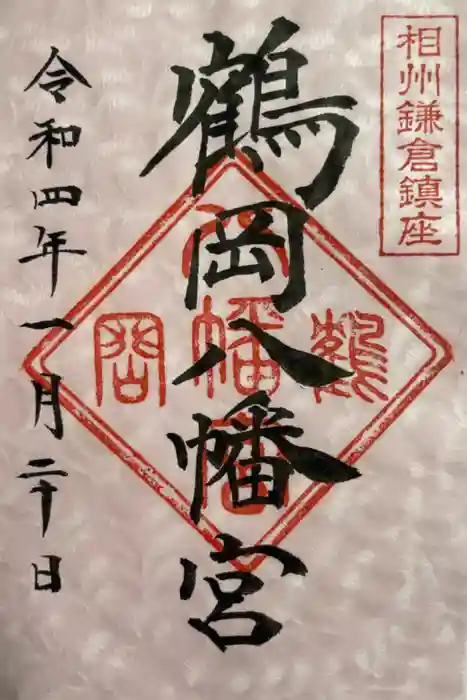 相州鎌倉鎮座
鶴岡八幡宮
鶴岡八幡宮
令和四年一月二十日